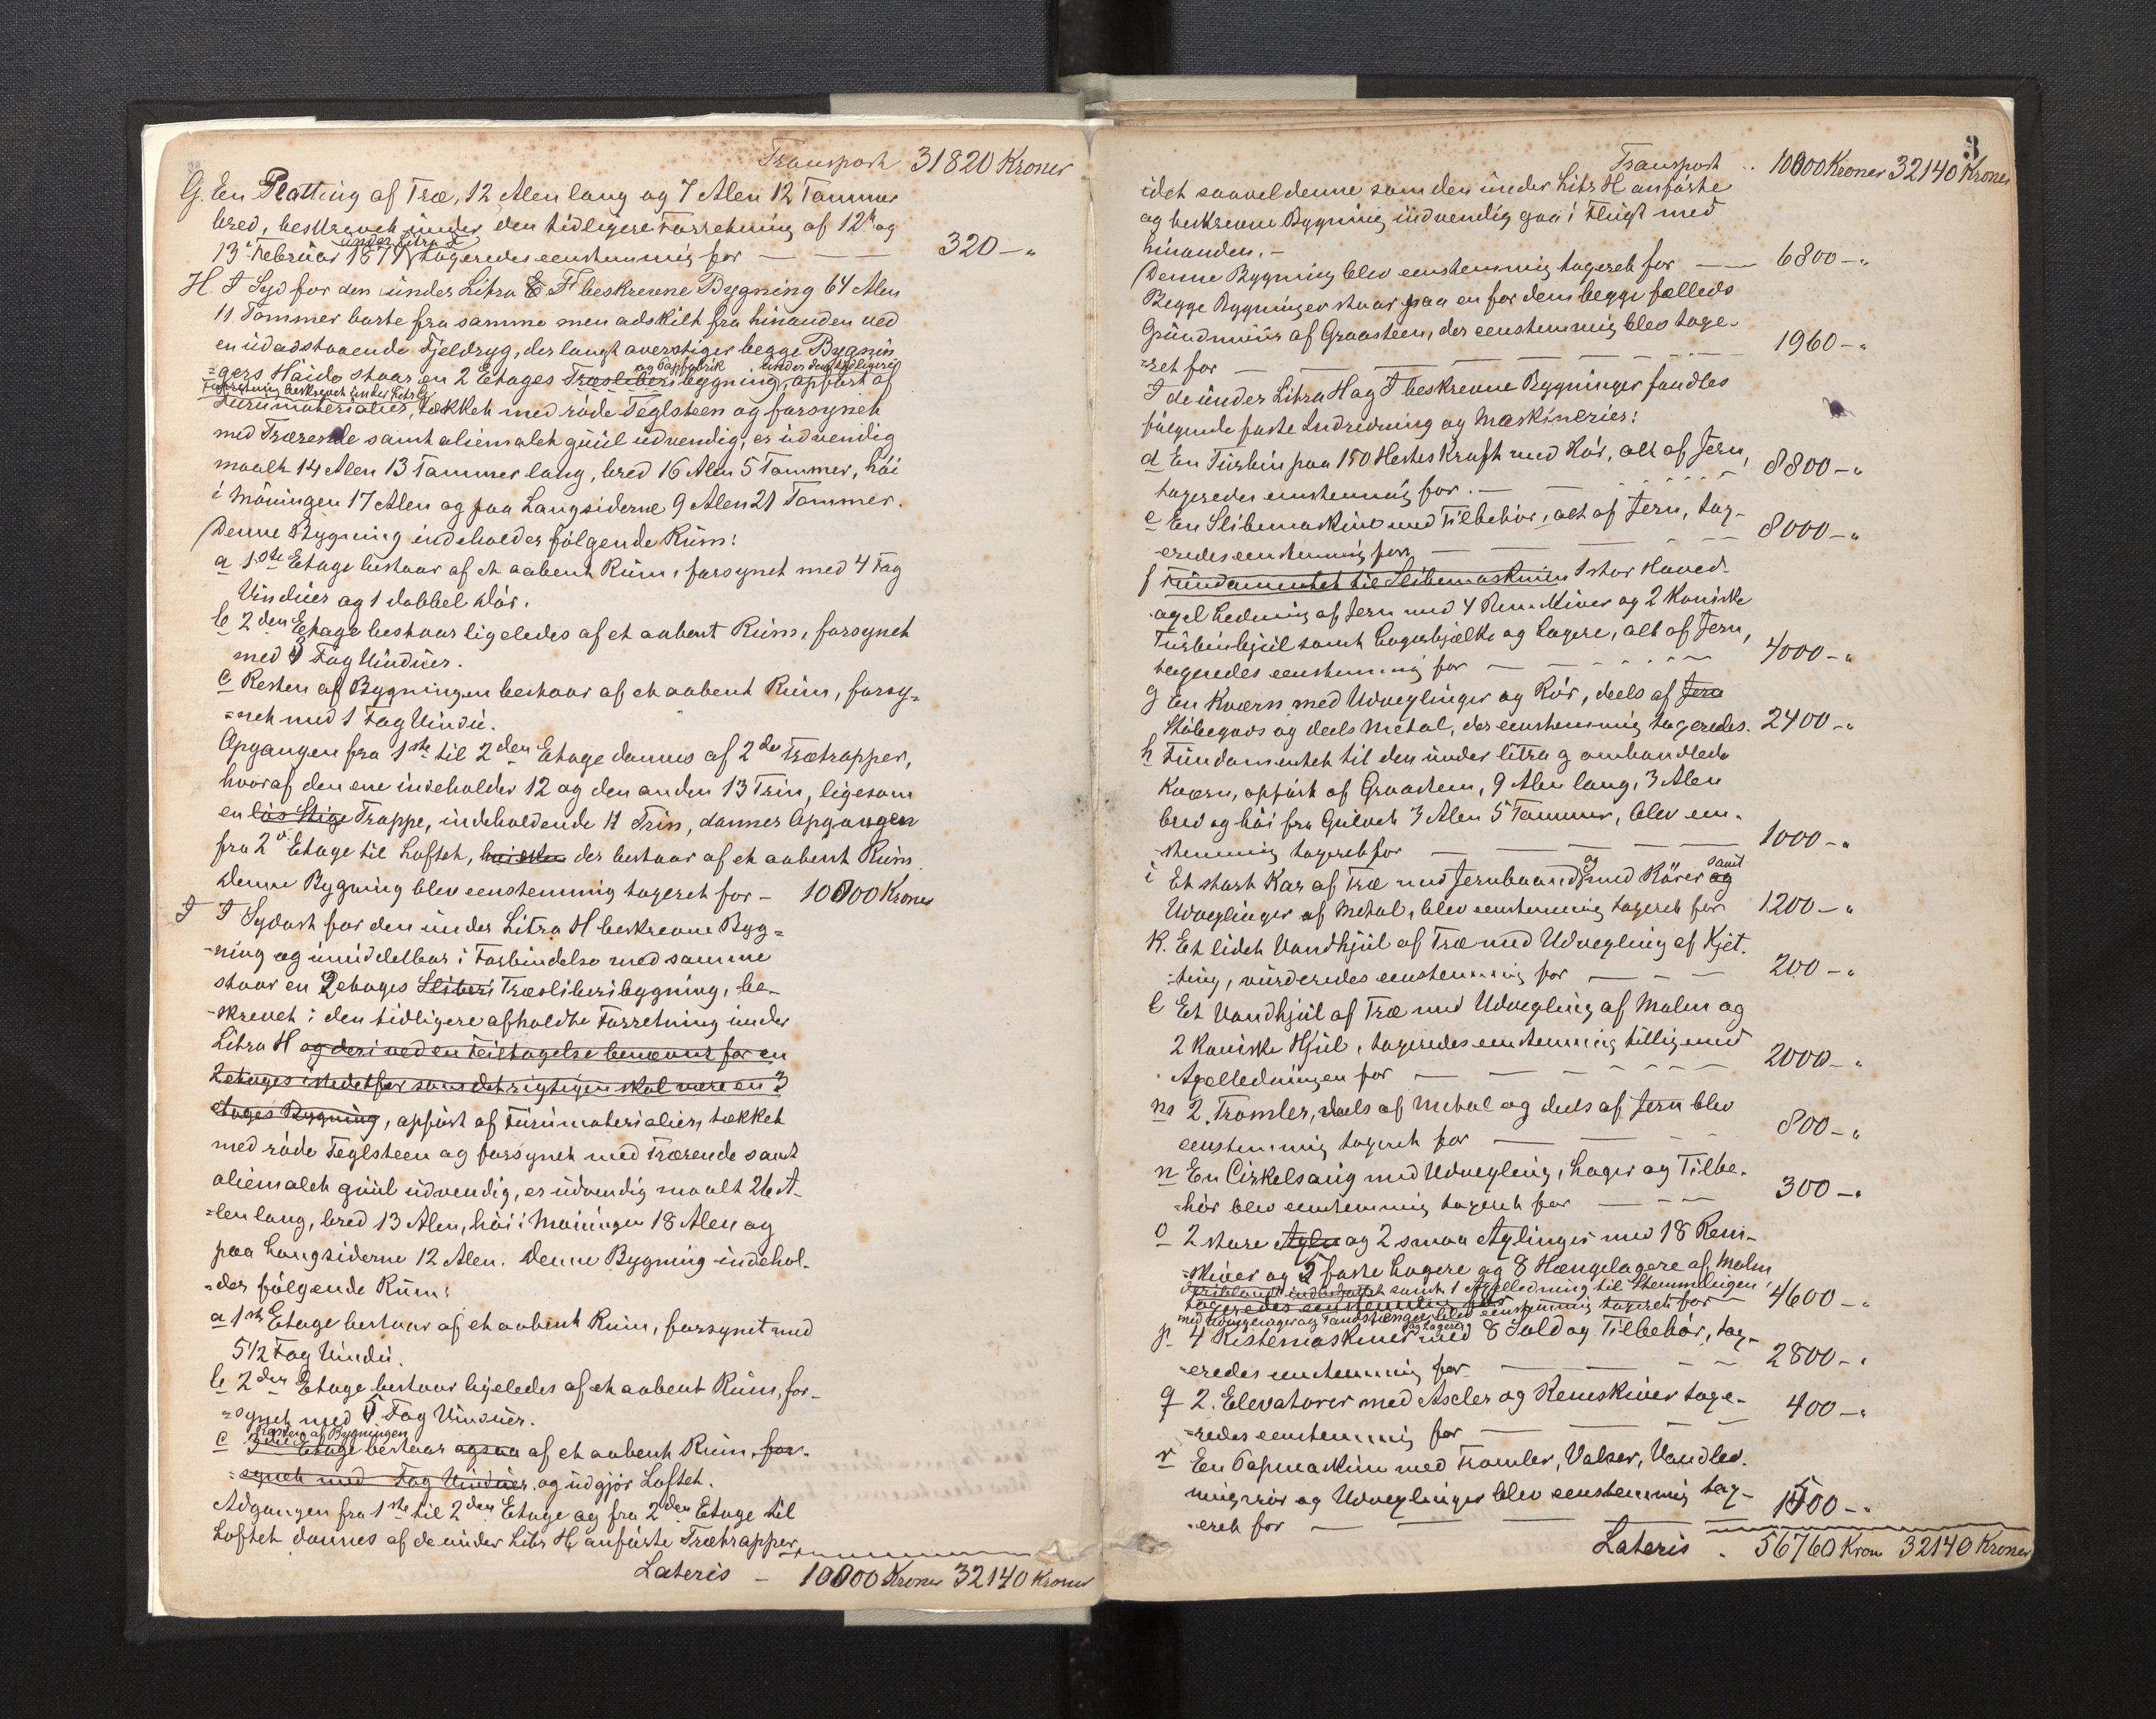 Transport 31820 Kroner
G. En Platting af Træ, 12 Alen lang og 7 Alen 12 Tommer
bred, beskrevet under den tidligere Forretning af 12te og
under Litra F
13de Februar 1877 taxeredes eenstemmig for — — — 320 — "
H. I Syd for den under Litra E F beskrevne Bygning 64 Alen
11 Tommer borte fra samme men adskilt fra hinanden ved
en udadstaaende Fjeldryg, der langt overstiger begge Bygnin
og Papfabrik under den tidligere
=gers Høide staar en 2 Etages Træsliberibygning, opført af
Forretning beskrevet under Litr G
Furumaterialier, tækket med røde Teglsteen og forsynet
med Trærende samt oliemalet guul udvendig, er udvendig
maalt 14 Alen 13 Tommer lang, bred 16 Alen 5 Tommer, høi
i Møningen 17 Alen og paa Langsiderne 9 Alen 21 Tommer.
Denne Bygning indeholder følgende Rum:
a 1ste Etage bestaar af et aabent Rum, forsynet med 4 Fag
Vinduer og 1 dobbel Dør.
b 2den Etage bestaar ligeledes af et aabent Rum, forsynet
med Fag Vinduer.
c Resten af Bygningen bestaar af et aabent Rum, forsy=
=net med 1 Fag Vindu.
Opgangen fra 1ste til 2den Etage dannes af 2de Trætrapper,
hvoraf den ene indeholder 12 og den anden 13 Trin, ligesom
en løs Stige Trappe, indeholdende 11 Trin, danner Opgangen
fra 2den Etage til Loftet, der bestaar af et aabent Rum
Denne Bygning blev eenstemmig taxeret for – 10000 Kroner
I I Sydost for den under Litra H beskrevne Byg=
=ning og umiddelbar i Forbindelse med samme
staar en 2 etages Sliberi Træsliberibygning, be–
–skrevet i den tidligere afholdte Forretning under
Litra H og deri ved en Feiltagelse benævnt for en
2 etages istedetfor som det rigtigen skal være en 3
etages Bygning, opført af Furumaterialier, tækket
med røde Teglsteen og forsynet med Trærende samt
oliemalet guul udvendig, er udvendig maalt 26 A–
=len lang, bred 13 Alen, høi i Møningen 18 Alen og
paa Langsiderne 12 Alen. Denne Bygning indehol–
=der følgende Rum:
a 1ste Etage bestaar af et aabent Rum, forsynet med
5 1/2 Fag Vindu.
b 2den Etage bestaar ligeledes af et aabent Rum, for–
=synet med 5 Fag Vinduer.
Resten af Bygningen
c 3die Etage bestaar ogsaa af et aabent Rum, for–
=synet med Fag Vinduer, og udgjør Loftet.
Adgangen fra 1ste til 2den Etage og fra 2den Etage til
Loftet dannes af de under Litr H anførte Trætrapper
Lateris – 10000 Kroner 32140 Kroner
3
Transport .. 10000 Kroner 32140 Kroner
idet saavel denne som den under Litr H anførte
og beskrevne Bygning udvendig gaa i Flugt med
hinanden. –
Denne Bygning blev eenstemmig taxeret for — 6800 – "
Begge Bygninger staar paa en for dem begge fælleds
Grundmuur af Graasteen, der eenstemmig blev taxe–
=ret for — — — 1960 – "
I de under Litra H og I beskrevne Bygninger fandtes
følgende faste Indredning og Maskinerier:
d En Turbin paa 150 Hestes Kraft med Rør, alt af Jern,
taxeredes eenstemmig for. — 8800 – "
e En Slibemaskine med Tilbehør, alt af Jern, tax–
–eredes eenstemmig for — 8000 – "
f Fundamentet til Slibemaskinen 1 stor Hoved–
axelledning af Jern med 4 Remskiver og 2 Koniske
Turbinhjul samt Lagerbjælke og Lagere, alt af Jern,
taxeredes eenstemmig for — 4000 – "
g En Kværn med Udvexlinger og Rør, deels af Jern
Støbegods og deels Metal, der eenstemmig taxeredes. 2400 – "
h Fundamentet til den under litra g omhandlede
Kværn, opført af Graasteen, 9 Alen lang, 3 Alen
bred og høi fra Gulvet 3 Alen 5 Tommer, blev een–
–stemmig taxeret for — 1000 – "
og samt
i Et stort Kar af Træ med Jernbaand med Rører og
Udvexlinger af Metal, blev eenstemmig taxeret for 1200 – "
K. Et lidet Vandhjul af Træ med Udvexling af Kjet–
–ting, vurderedes eenstemmig for — 200 – "
l Et Vandhjul af Træ med Udvexling af Malm og
2 Koniske Hjul, taxeredes eenstemmig tilligemed
Axelledningen for — 2000 – "
m 2. Tromler, deels af Metal og deels af Jern blev
eenstemmig taxeret for — 800 – "
n En Cirkelsaug med Udvexling, Lager og Tilbe–
–hør blev eenstemmig taxeret for — 300 – "
o 2 store Axler og 2 smaa Axlinger med 18 Rem–
–skiver og 5 faste Lagere og 8 Hængelagere af Malm
samt 1 Axelledning til Stemmlugen
taxeredes eenstemmig for 4600 – "
med og Tandstænger blev eenstemmig taxeret for
og Lagere
p. 4 Ristemaskiner med 8 Sold og Tilbehør, tax–
–eredes eenstemmig for — 2800 – "
q 2. Elevatorer med Axeler og Remskiver taxe–
–redes eenstemmig for — 400 – "
r En Papmaskine med Tromler, Valser, Vandled–
ningsrør og Udvexlinger blev eenstemmig tax–
–eret for — 1500 – "
Lateris . 56760 Kron 32140 Kroner